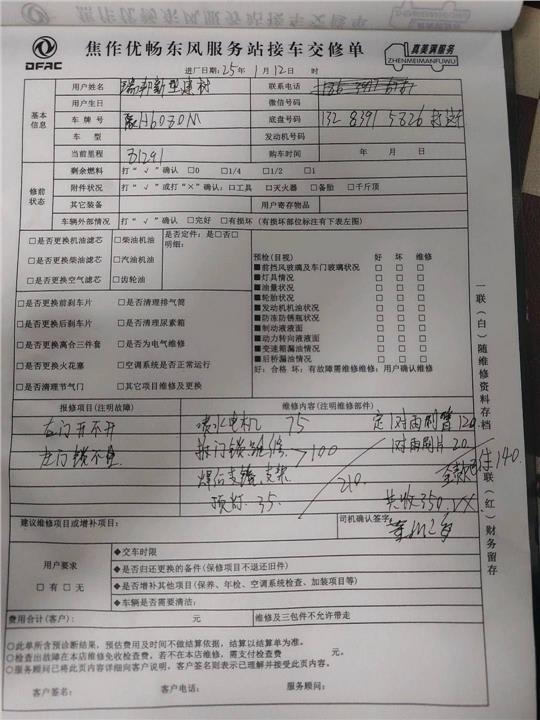 DFAC
焦作优畅东风服务站接车交修单
真美满服务
ZHENMEIMANFUWU
进厂日期:25年1月12日 时
基本信息
用户姓名 瑞邦新型建材 联系电话
用户生日 微信号码
车牌号 豫H6080M 底盘号码 132 8391 5826
车型 发动机号码
当前里程 31291 购车时间 年 月 日
修前状态
剩余燃料 打“√”确认 □0 □1/4 □1/2 □1
附件状况 打“√”或打“×”确认:□工具 □灭火器 □备胎 □千斤顶
其它装备 用户寄存物品
车辆外部情况 打“√”确认 □完好 □有损坏(有损坏部位标注有下表左图)
□是否更换机油滤芯 □柴油机油 是否定件:是□否□
□是否更换柴油滤芯 □汽油机油 明细:
□是否更换空气滤芯 □齿轮油
□是否更换前刹车片 □是否清理排气筒
□是否更换后刹车片 □是否清理尿素箱
□是否更换离合三件套 □是否为电气维修
□是否更换火花塞 □空调系统是否正常运行
□是否清理节气门 □其它项目维修及更换
预检(目视) 好 坏 维修
■前挡风玻璃及车门玻璃状况 □ □ □
■灯具情况 □ □ □
■油量状况 □ □ □
■轮胎状况 □ □ □
■发动机机油状况 □ □ □
■防冻防锈瓶状况 □ □ □
■制动液液面 □ □ □
■动力转向液液面 □ □ □
■变速箱漏油情况 □ □ □
■后桥漏油情况 □ □ □
好:合格 坏:有故障需维修维修:用户确认维修
一联(白)随维修资料存档
二联(红)财务留存
报修项目(注明故障) 维修内容(注明维修部件)
右门开不开 喷水电机 75 定1对雨刷臂120
左门锁不 拆门锁维修 >100 1对雨刷片20
焊后支镜支架 210 全款已付140.
顶灯.35 共收350
建议维修项目或增补项目: 司机确认签字:
用户要求
□有□无
◆交车时限
◆是否归还更换的备件(保修项目不退还旧件)
◆是否增补其他项目(保养、年检、空调系统检查、加装项目等)
◆车辆是否需要清洁:
费用合计(客户): 元 维修及三包件不允许带走
○此单所含预诊断结果,预估费用及时间不做结算依据,结算以结算单为准。
○检查出故障在本店维修免收检查费,若不在本店维修,需支付检查费 元。
○服务顾问已将此页内容详细向客户说明,客户签名则表示已理解并接受此页内容。
客户签名: 客户电话: 服务顾问: